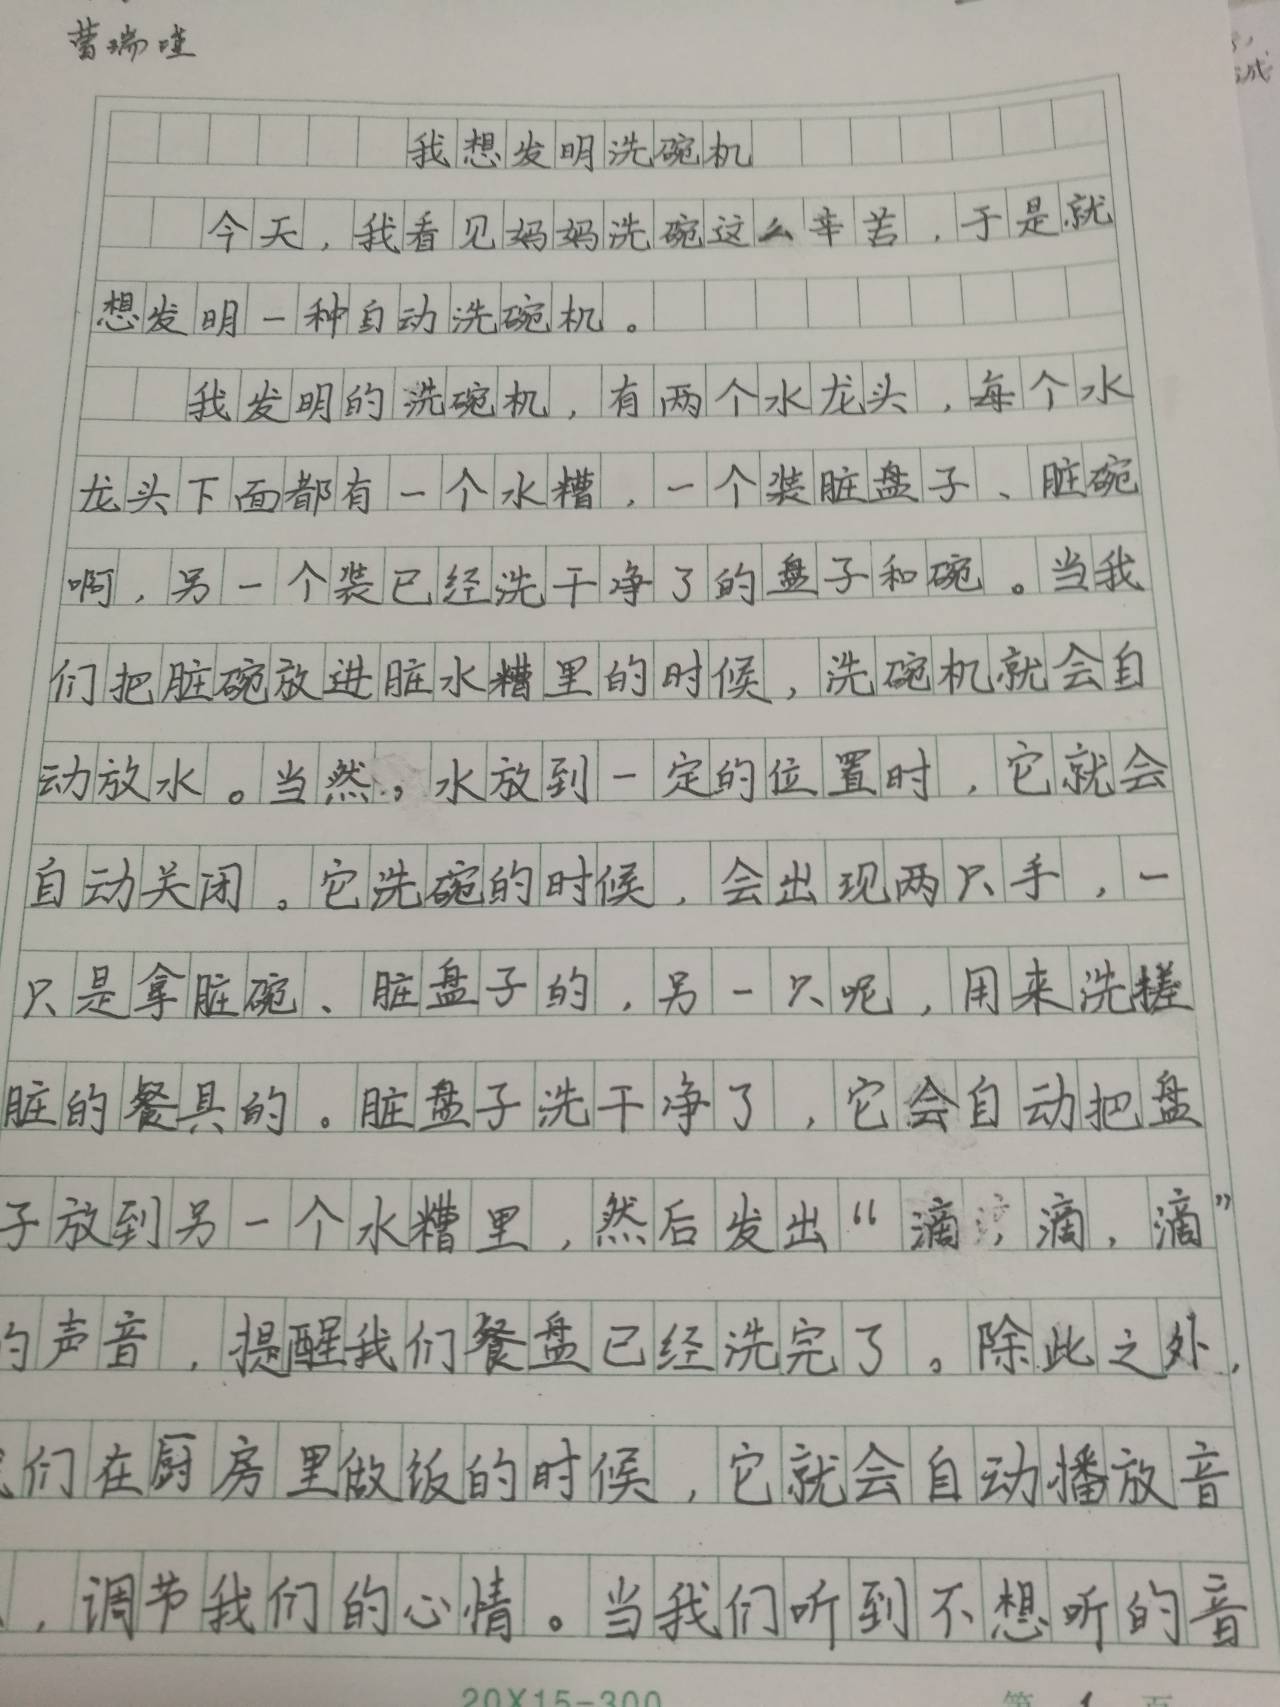 曹瑞
我想发明洗碗机
今天，我看见妈妈洗碗这么辛苦，于是就
想发明一种自动洗碗机。
我发明的洗碗机，有两个水龙头，每个水
龙头下面都有一个水糟，一个装脏盘子、脏碗
啊，另一个装已经洗干净了的盘子和碗。当我
们把脏碗放进脏水糟里的时候，洗碗机就会自
动放水。当然，水放到一定的位置时，它就会
自动关闭。它洗碗的时候，会出现两只手，一
只是拿脏碗、脏盘子的，另一只呢，用来洗搓
脏的餐具的。脏盘子洗干净了，它会自动把盘
子放到另一个水糟里，然后发出“滴，滴，滴”
的声音，提醒我们餐盘已经洗完了。除此之外，
们在厨房里做饭的时候，它就会自动播放音
，调节我们的心情。当我们听到不想听的音
20X15=300
第 1 页